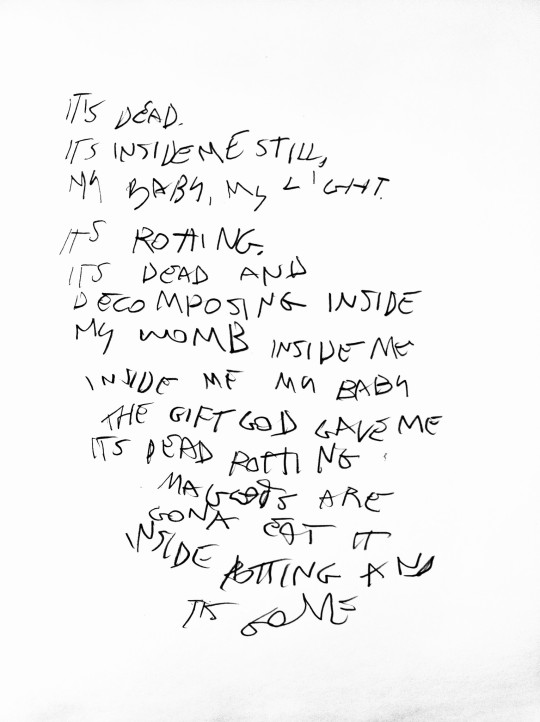 IT'S DEAD.
ITS INSIDE ME STILL,
MY BABY, MY LIGHT.
IT'S ROTTING.
ITS DEAD AND
DECOMPOSING INSIDE
MY WOMB INSIDE ME
INSIDE ME MY BABY
THE GIFT GOD GAVE ME
ITS DEAD ROTTING
MAGGOTS ARE
GONA EAT IT
INSIDE ROTTING AND
ITS GONE